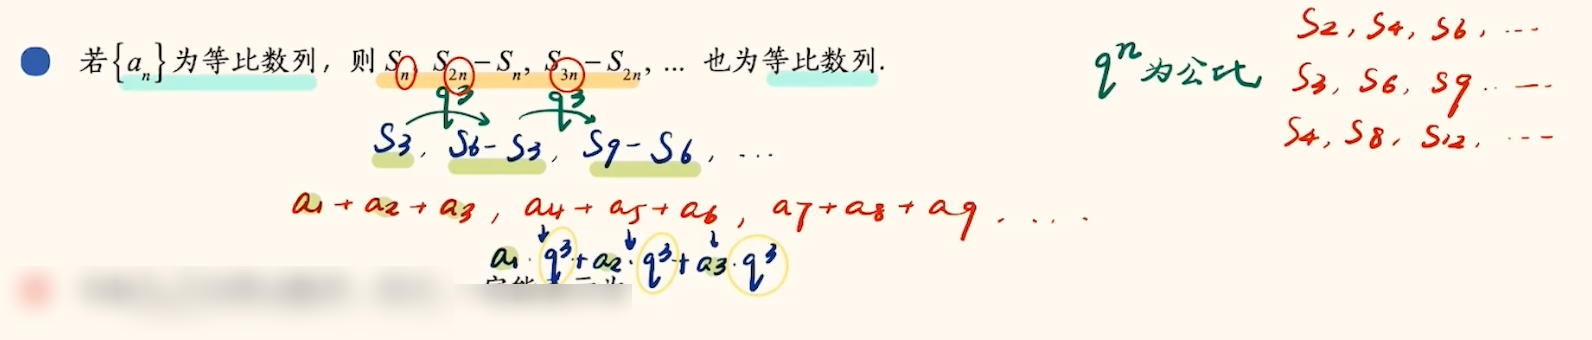 若{aₙ}为等比数列，则 Sₙ, S₂ₙ－Sₙ, S₃ₙ－S₂ₙ, … 也为等比数列.
qⁿ为公比
S2, S4, S6, ...
S3, S6, S9 .. ...
S4, S8, S12, ...
q³ q³
S3, S6-S3, S9-S6, ...
a1+a2+a3, a4+a5+a6, a7+a8+a9 ....
a1·q³+a2·q³+a3·q³